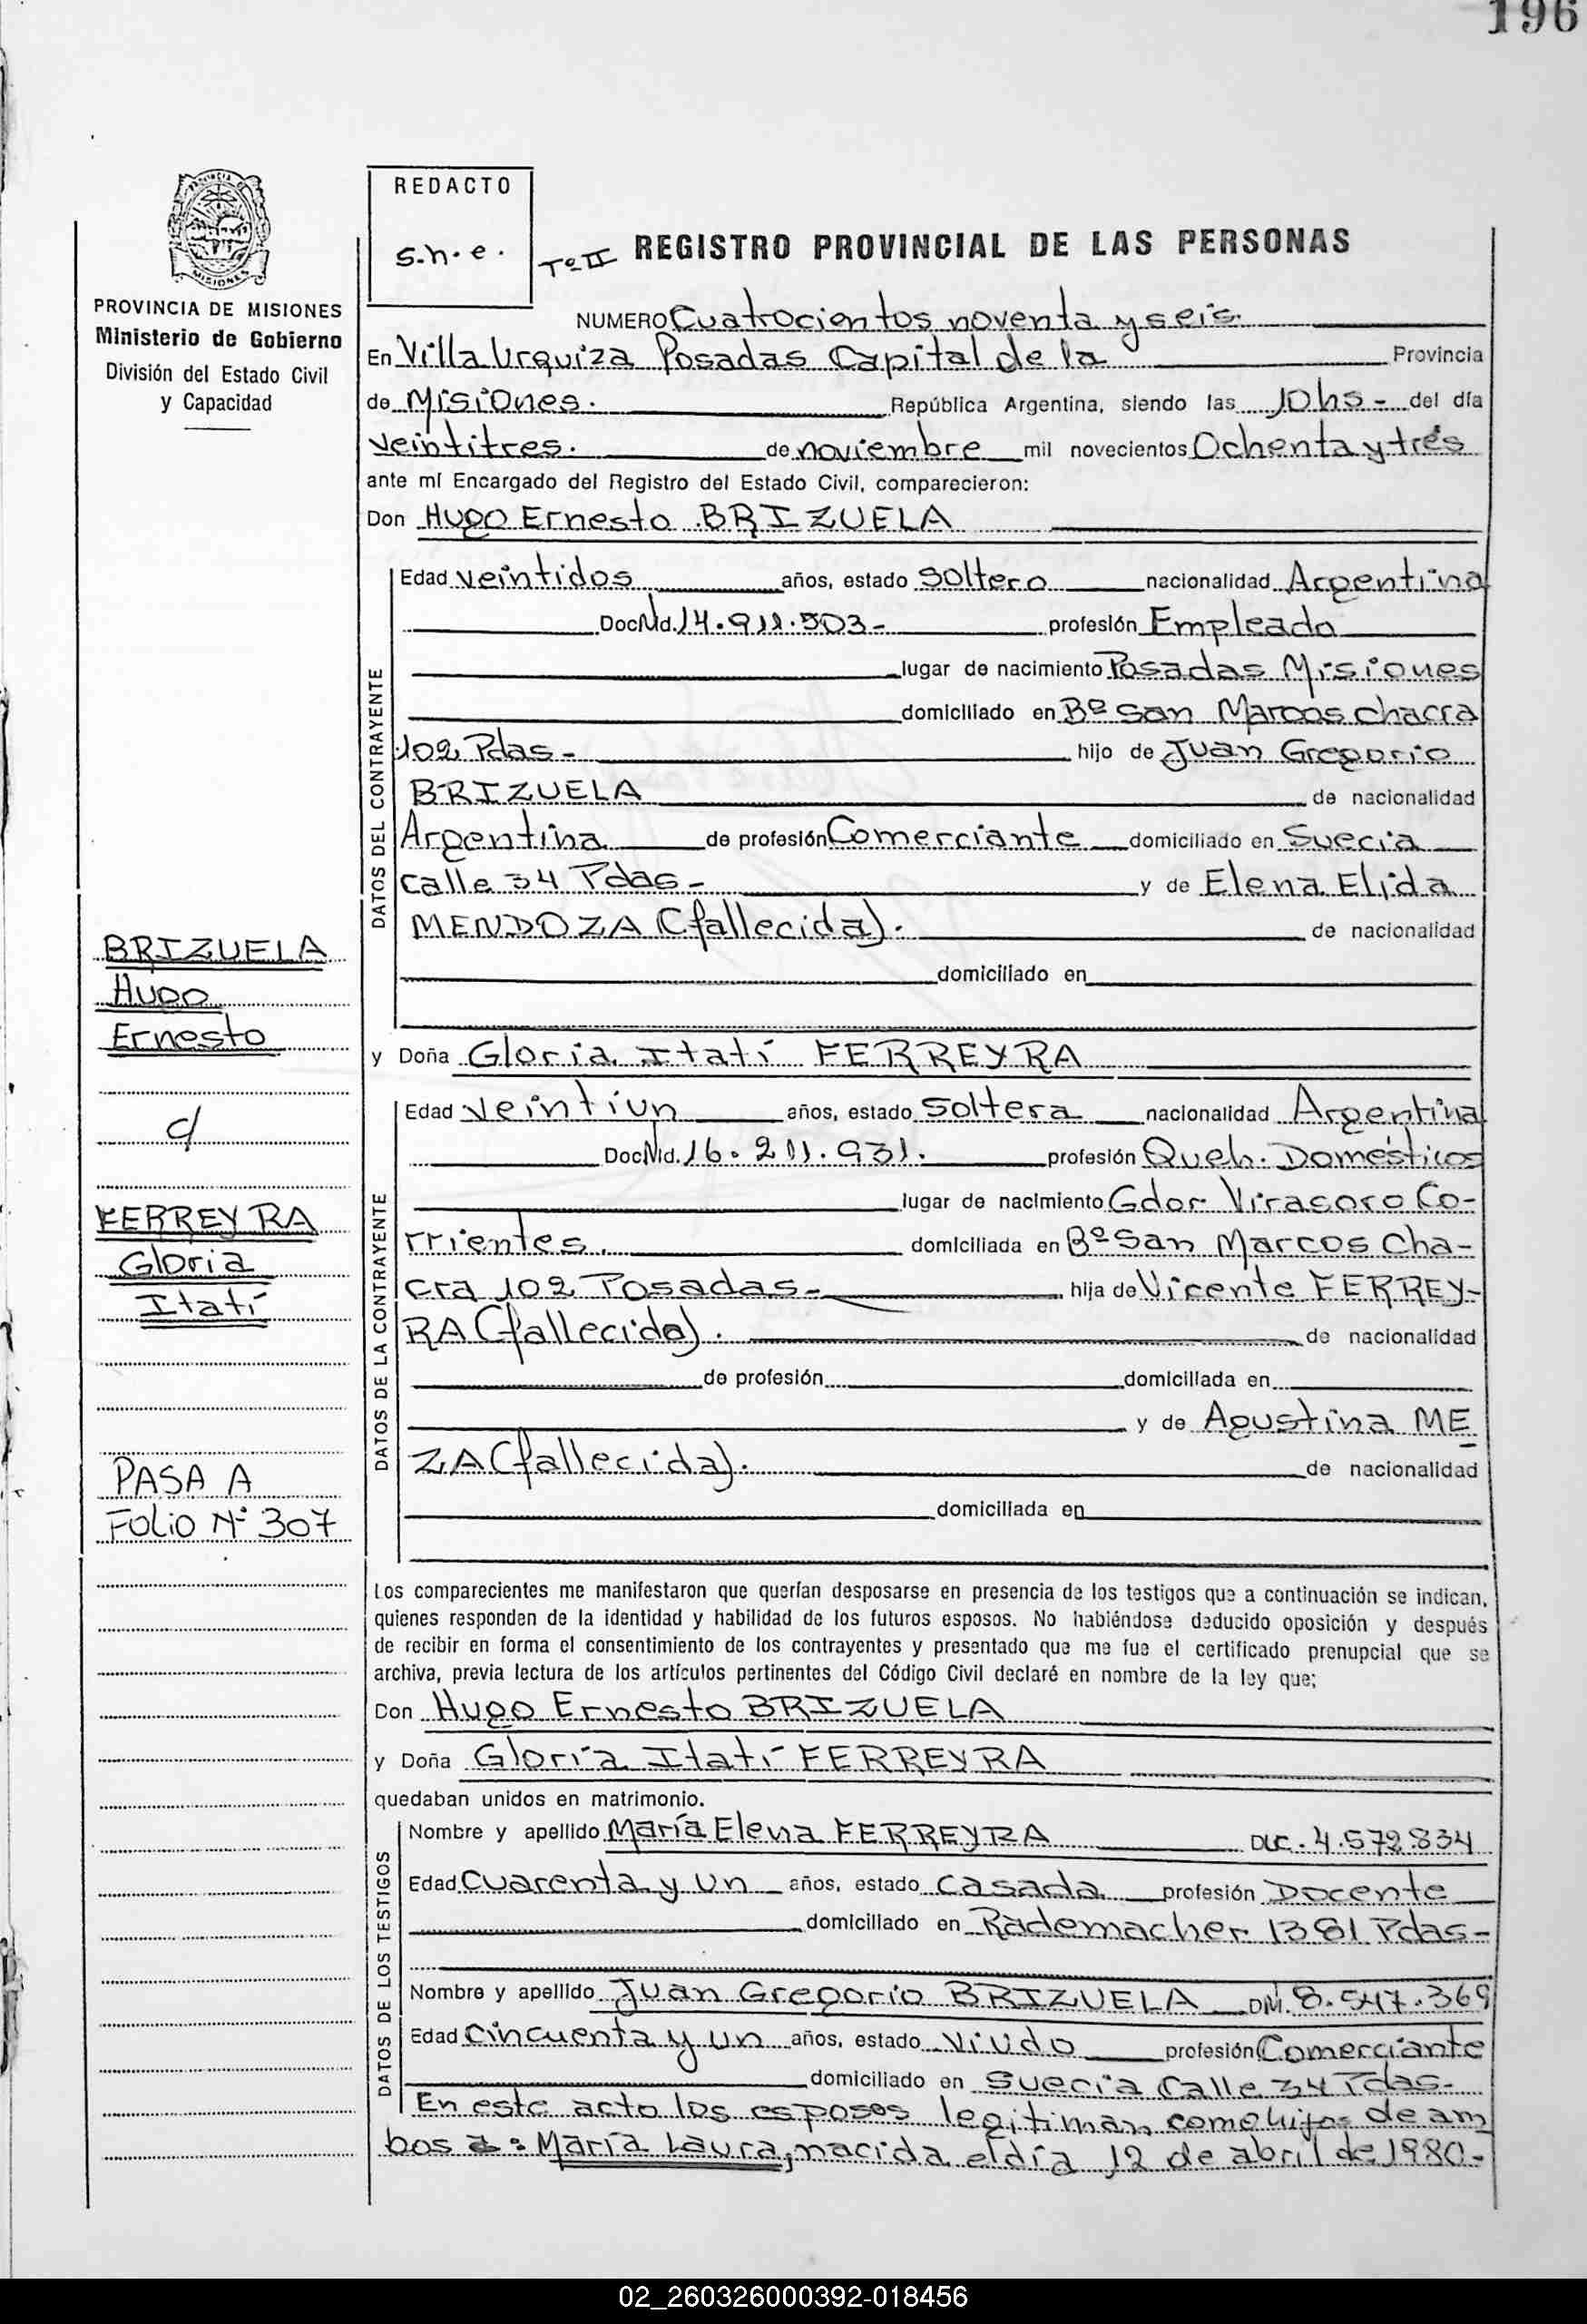 196
REDACTO
s.n.e.
Tº II REGISTRO PROVINCIAL DE LAS PERSONAS
PROVINCIA DE MISIONES
Ministerio de Gobierno
División del Estado Civil
y Capacidad
NUMERO Cuatrocientos noventa y seis.
En Villa Urquiza Posadas Capital de la Provincia
de Misiones. República Argentina, siendo las 10hs- del día
veintitres. de noviembre mil novecientos Ochenta y trés
ante mí Encargado del Registro del Estado Civil, comparecieron:
Don Hugo Ernesto BRIZUELA
DATOS DEL CONTRAYENTE
Edad veintidos años, estado Soltero nacionalidad Argentina
Doc Nid. 14.911.503- profesión Empleado
lugar de nacimiento Posadas Misiones
domiciliado en Bº San Marcos chacra
102 Pdas- hijo de Juan Gregorio
BRIZUELA de nacionalidad
Argentina de profesión Comerciante domiciliado en Suecia
calle 34 Pdas- y de Elena Elida
MENDOZA (fallecida). de nacionalidad
domiciliado en
BRIZUELA
Hugo
Ernesto
c/
FERREYRA
Gloria
Itatí
PASA A
FOLIO Nº 307
y Doña Gloria Itatí FERREYRA
DATOS DE LA CONTRAYENTE
Edad veintiun años, estado Soltera nacionalidad Argentina
Doc Nid. 16.211.931. profesión Queh. Domésticos
lugar de nacimiento Gdor Virasoro Co-
rrientes. domiciliada en Bº San Marcos Cha-
cra 102 Posadas- hija de Vicente FERREY-
RA (fallecido). de nacionalidad
de profesión domiciliada en
y de Agustina ME
ZA (fallecida). de nacionalidad
domiciliada en
Los comparecientes me manifestaron que querían desposarse en presencia de los testigos que a continuación se indican,
quienes responden de la identidad y habilidad de los futuros esposos. No habiéndose deducido oposición y después
de recibir en forma el consentimiento de los contrayentes y presentado que me fue el certificado prenupcial que se
archiva, previa lectura de los artículos pertinentes del Código Civil declaré en nombre de la ley que;
Don Hugo Ernesto BRIZUELA
y Doña Gloria Itatí FERREYRA
quedaban unidos en matrimonio.
DATOS DE LOS TESTIGOS
Nombre y apellido María Elena FERREYRA DLC. 4.572.834
Edad Cuarenta y un años, estado Casada profesión Docente
domiciliado en Rademacher 1381 Pdas-
Nombre y apellido Juan Gregorio BRIZUELA DNI. 8.547.369
Edad Cincuenta y un años, estado Viudo profesión Comerciante
domiciliado en Suecia Calle 34 Pdas-
En este acto los esposos legitiman como hijos de am
bos a: María Laura, nacida el día 12 de abril de 1980-
02_260326000392-018456